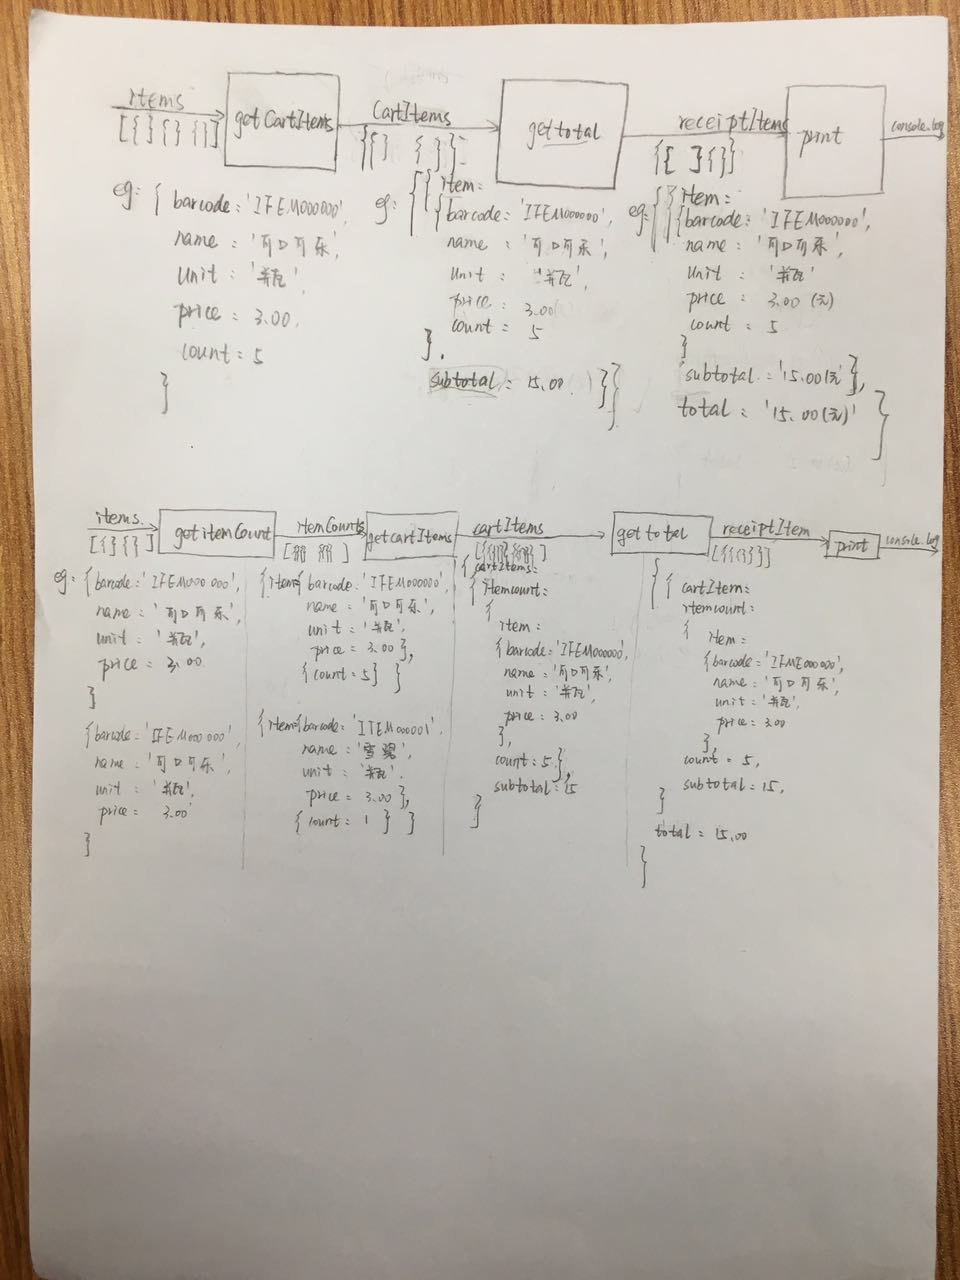 items
getCartItems
cartItems
gettotal
receiptItems
print
console.log
[{ } { } { }]
{[ ] { }}
eg: { barcode: 'IFEM000000',
name : '可口可乐',
unit : '瓶',
price = 3.00,
count = 5
}
eg: { { item:
{ barcode: 'IFEM000000',
name : '可口可乐',
unit : '瓶',
price = 3.00
count = 5
},
subtotal = 15.00 } }
eg: { { item:
{ barcode: 'IFEM000000',
name : '可口可乐',
unit : '瓶'
price : 3.00 (元)
count : 5
}
subtotal : '15.00(元' },
total : '15.00(元)'
}
items
getitemCount
itemCounts
getcartItems
cartItems
gettotal
receiptItem
print
console.log
[{ } { }]
eg: { barcode: 'IFEM000 000',
name : '可口可乐',
unit : '瓶',
price = 3.00
}
{ barcode: 'IFEM000 000',
name : '可口可乐',
unit : '瓶',
price = 3.00
}
{ item={ barcode: 'IFEM000000',
name : '可口可乐',
unit : '瓶',
price = 3.00 },
{ count = 5 } }
{ item={ barcode: 'ITEM000001',
name : '雪碧',
unit : '瓶',
price = 3.00 },
{ count : 1 } }
{ cartItems:
{ itemcount:
{
item :
{ barcode: 'IFEM000000',
name : '可口可乐',
unit : '瓶',
price = 3.00
},
count : 5 },
subtotal : 15
}
{ { cartItem:
itemcount:
{ item :
{ barcode: 'IFME000000',
name : '可口可乐',
unit : '瓶',
price = 3.00
},
count = 5,
subtotal = 15,
}
total = 15.00
}